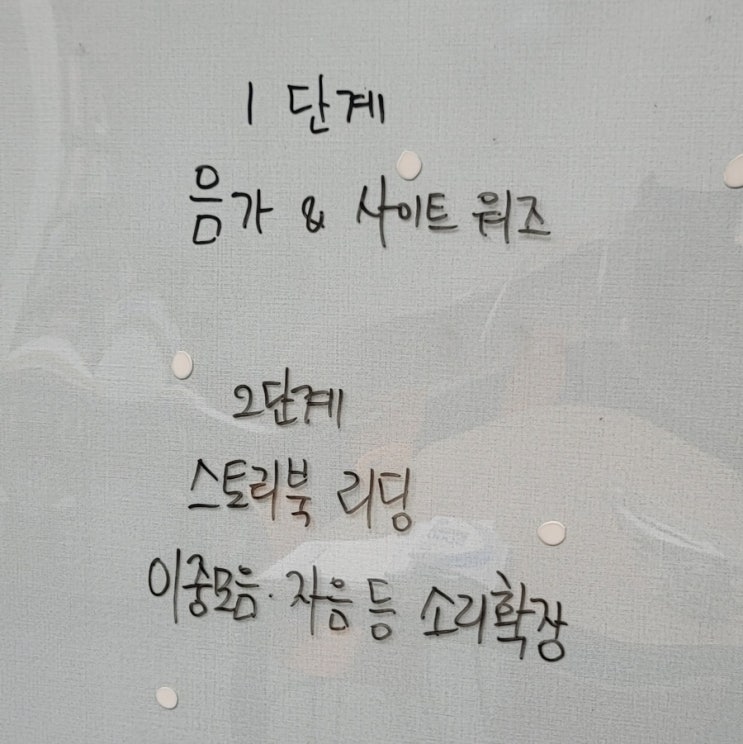 1 단계
음가 & 사이트 워즈
2단계
스토리북 리딩
이중모음·자음 등 소리확장